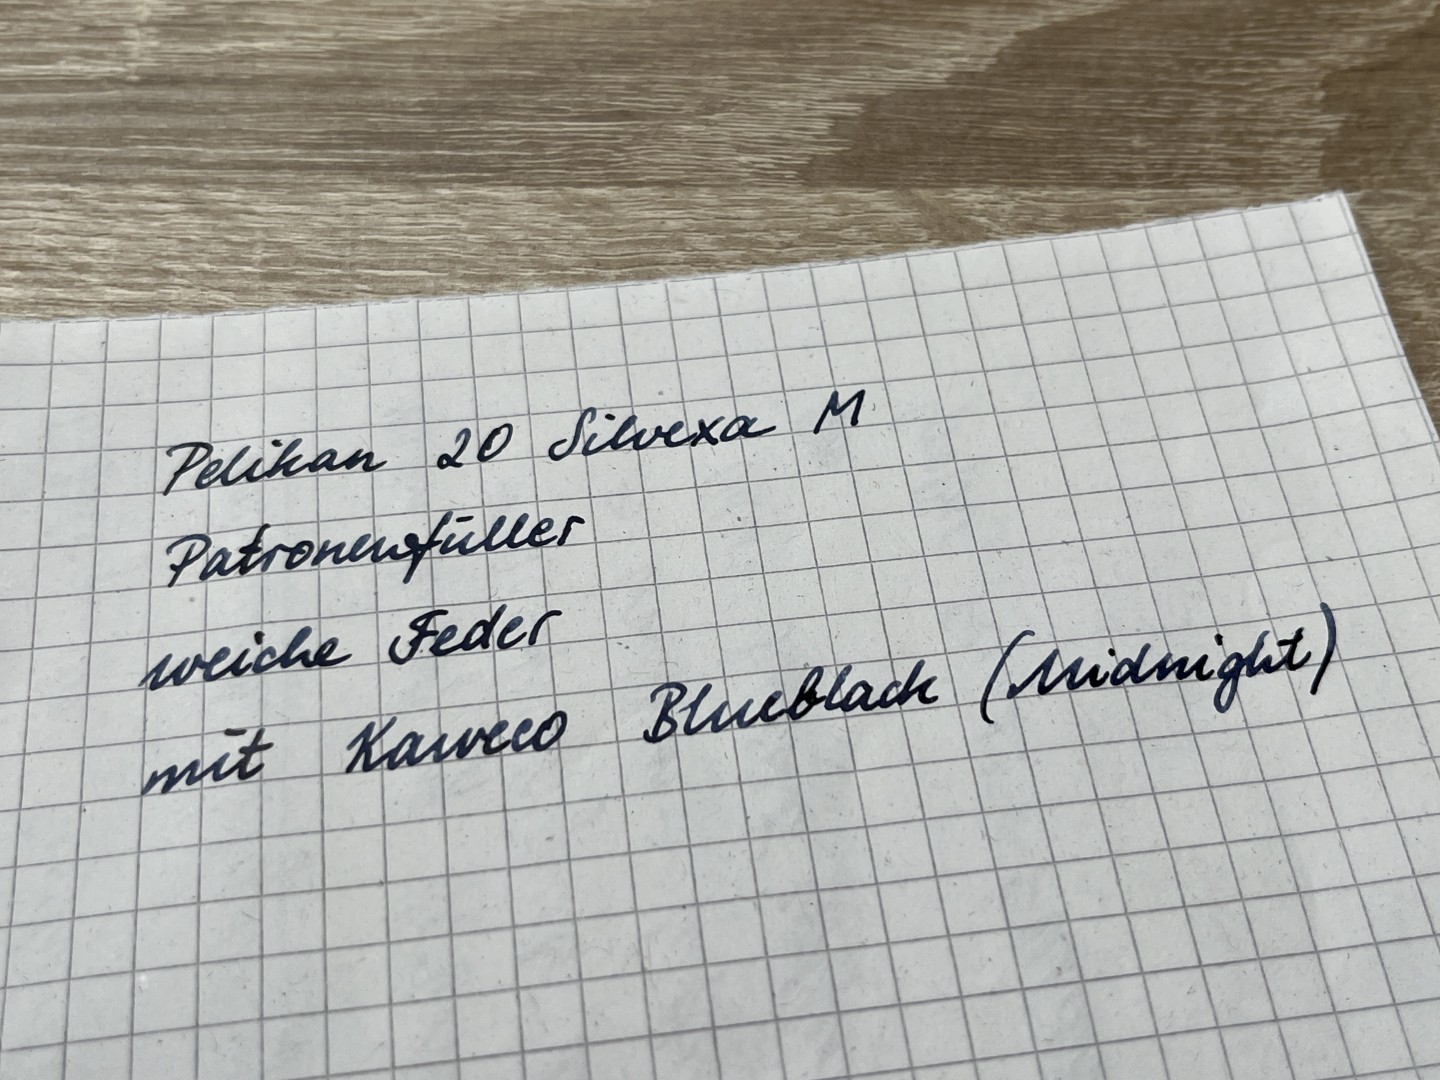 Pelikan 20 Silvexa M
Patronenfüller
weiche Feder
mit Kaweco Blueblack (Midnight)